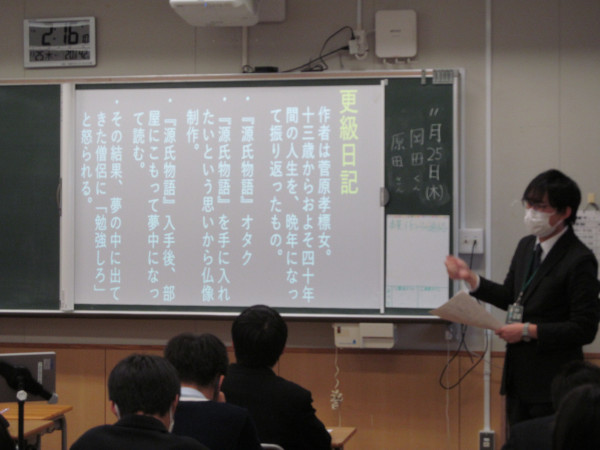 2:16
11月25日(木)
岡田くん
原田さん
更級日記
作者は菅原孝標女。
十三歳からおよそ四十年
間の人生を、晩年になっ
て振り返ったもの。
・『源氏物語』オタク
・『源氏物語』を手に入れ
たいという思いから仏像
制作。
・『源氏物語』入手後、部
屋にこもって夢中になっ
て読む。
・その結果、夢の中に出て
きた僧侶に「勉強しろ」
と怒られる。